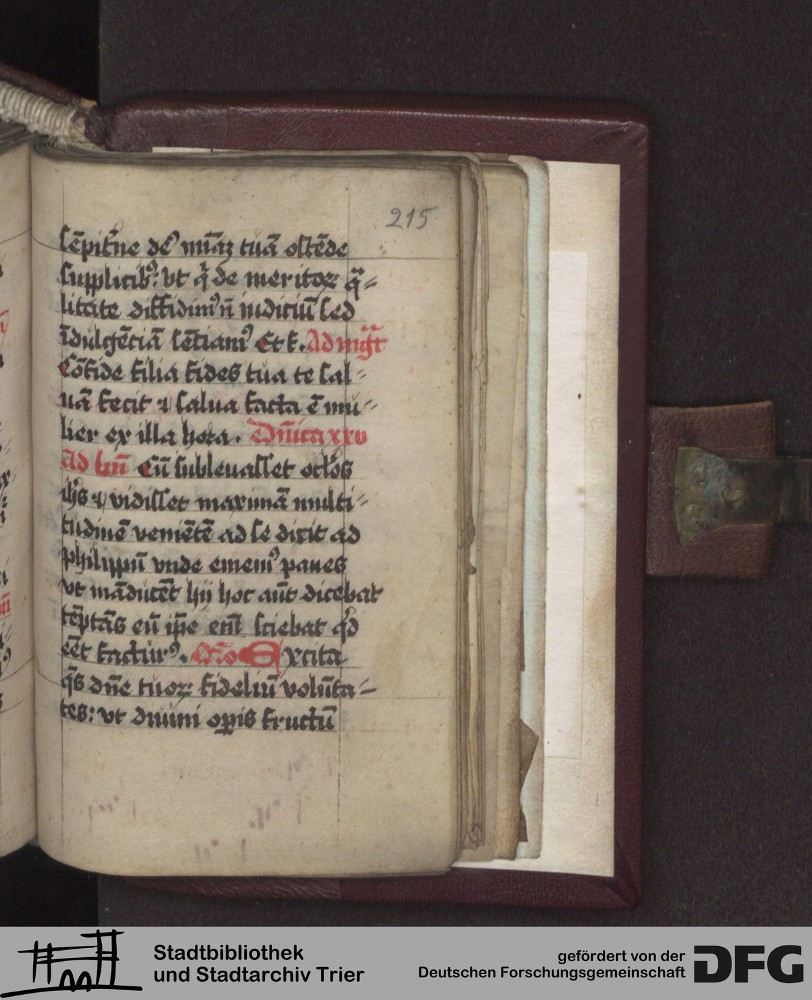 215
sēpit͛ne deꝰ mīaꝫ tuā ostēde
supplicibꝰ: vt q̄ de meritoꝝ q̄-
litate diffidimꝰ nō iudiciū sed
īdulgēciā sētiamꝰ Et f. Ad mgͣt
Cōfide filia fides tua te sal-
uā fecit ⁊ salua facta ē mu-
lier ex illa hora. Dn̄ica xxv
Ad bn̄ Cū subleuasset oclōs
ih̄s ⁊ vidisset maximā multi-
tudinē veniētē ad se dixit ad
philippū vnde ememꝰ panes
vt māducēt hij hoc aūt dicebat
tēptās eū ip̄e eni̅ sciebat qͥd
eēt facturꝰ. Oro̅ Excita
q̄s dn̄e tuoꝝ fideliū volūta-
tes: vt diuini oꝑis fructū
Stadtbibliothek
und Stadtarchiv Trier
gefördert von der
Deutschen Forschungsgemeinschaft
DFG